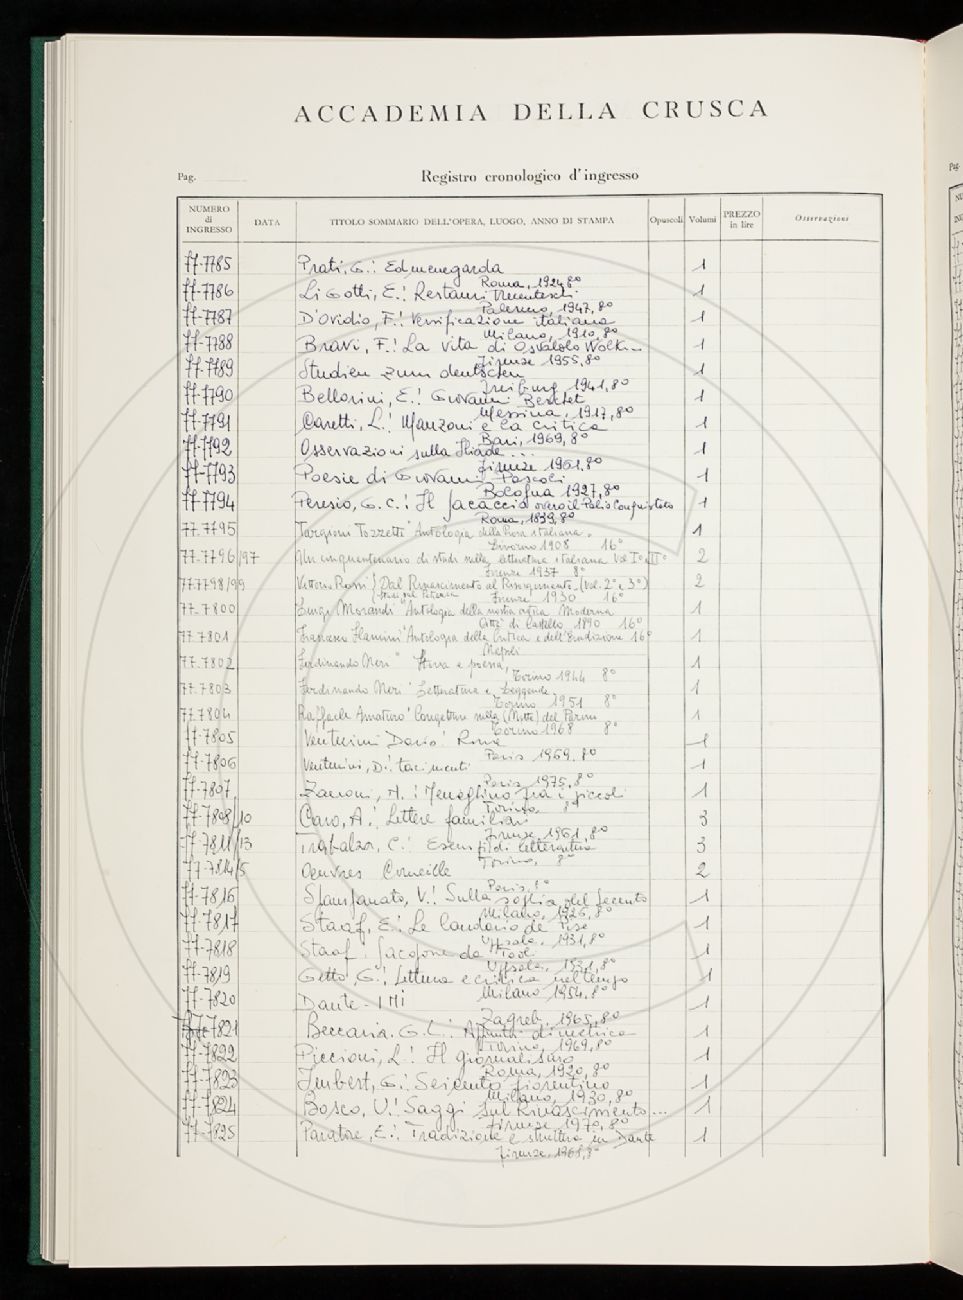 ACCADEMIA DELLA CRUSCA
Pag.
Registro cronologico d'ingresso
NUMERO di INGRESSO DATA TITOLO SOMMARIO DELL'OPERA, LUOGO, ANNO DI STAMPA Opuscoli Volumi PREZZO in lire Osservazioni
77-7785 Prati, G.: Edmenegarda 1
Roma, 1924, 8°
77-7786 Li Gotti, E.: Restauri Trecenteschi 1
Palermo, 1947, 8°
77-7787 D'Ovidio, F.: Versificazione italiana 1
Milano, 1910, 8°
77-7788 Bravi, F.: La vita di Osvaldo Wolk... 1
Firenze 1955, 8°
77-7789 Studien zum deutschen 1
Freiburg 1941, 8°
77-7790 Bellorini, E.: Giovanni Berchet 1
Messina, 1917, 8°
77-7791 Caretti, L.: Manzoni e la critica 1
Bari, 1969, 8°
77-7792 Osservazioni sulla Iliade... 1
Firenze 1961, 8°
77-7793 Poesie di Giovanni Pascoli 1
Bologna 1927, 8°
77-7794 Peresio, G.C.: Il Jacaccio overo il Palio Conquistato 1
Roma, 1939, 8°
77.7795 Targioni Tozzetti "Antologia della Prosa italiana" 1
Livorno 1908 16°
77.7796/97 Un cinquantenario di studi sulla letteratura italiana Vol I° e II° 2
Firenze 1937 8°
77.7798/99 Vittorio Rossi Dal Rinascimento al Risorgimento (Vol. 2° e 3°) 2
Studi sul Petrarca Firenze 1930 16°
77.7800 Luigi Morandi "Antologia della nostra critica Moderna 1
Città di Castello 1890 16°
77.7801 Francesco Flamini "Antologia della Critica e dell'Erudizione 16° 1
Napoli
77.7802 Ferdinando Neri "Storia e poesia" 1
Torino 1944 8°
77.7803 Ferdinando Neri "Letteratura e Leggende" 1
Torino 1951 8°
77.7804 Raffaele Amaturo "Congetture sulla (Notte) del Parini 1
Torino 1968 8°
77-7805 Venturini Dario: Rome 1
Paris 1969, 8°
77-7806 Venturini, D.: 1
Paris 1975, 8°
77-7807 Zanoni, A.: Meneghino fra i piccoli 1
Torino, 8°
77-7808/10 Caro, A.: Lettere familiari 3
Firenze, 1961, 8°
77-7811/13 Trabalza, C.: Esempi di letteratura 3
Torino, 8°
77-7814/5 Oeuvres Corneille 2
Paris, 8°
77-7816 Sfanfanato, V.: Sulla soglia del Seicento 1
Milano, 1926, 8°
77-7817 Staaf, E.: Le laudario de Pise 1
Upsala, 1931, 8°
77-7818 Staaf: Jacopone da Todi 1
Upsala, 1931, 8°
77-7819 Getto, G.: Letteratura e critica nel tempo 1
Milano 1954, 8°
77-7820 Dante - 1
Zagreb, 1965, 8°
77-7821 Beccaria, G.L.: Appunti di metrica 1
Torino, 1969, 8°
77-7822 Piccioni, L.: Il giornalismo 1
Roma, 1920, 8°
77-7823 Imbert, G.: Seicento fiorentino 1
Milano, 1930, 8°
77-7824 Bosco, U.: Saggi sul Rinascimento... 1
Firenze 1970, 8°
77-7825 Paratore, E.: Tradizione e struttura in Dante 1
Firenze, 1968, 8°